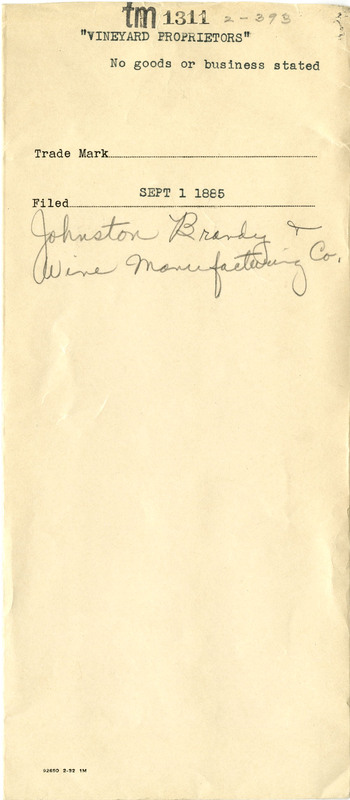 tm 1311 2-393
"VINEYARD PROPRIETORS"
No goods or business stated
Trade Mark
Filed SEPT 1 1885
Johnston Brandy &
Wine Manufacturing Co.
92680 2-32 1M